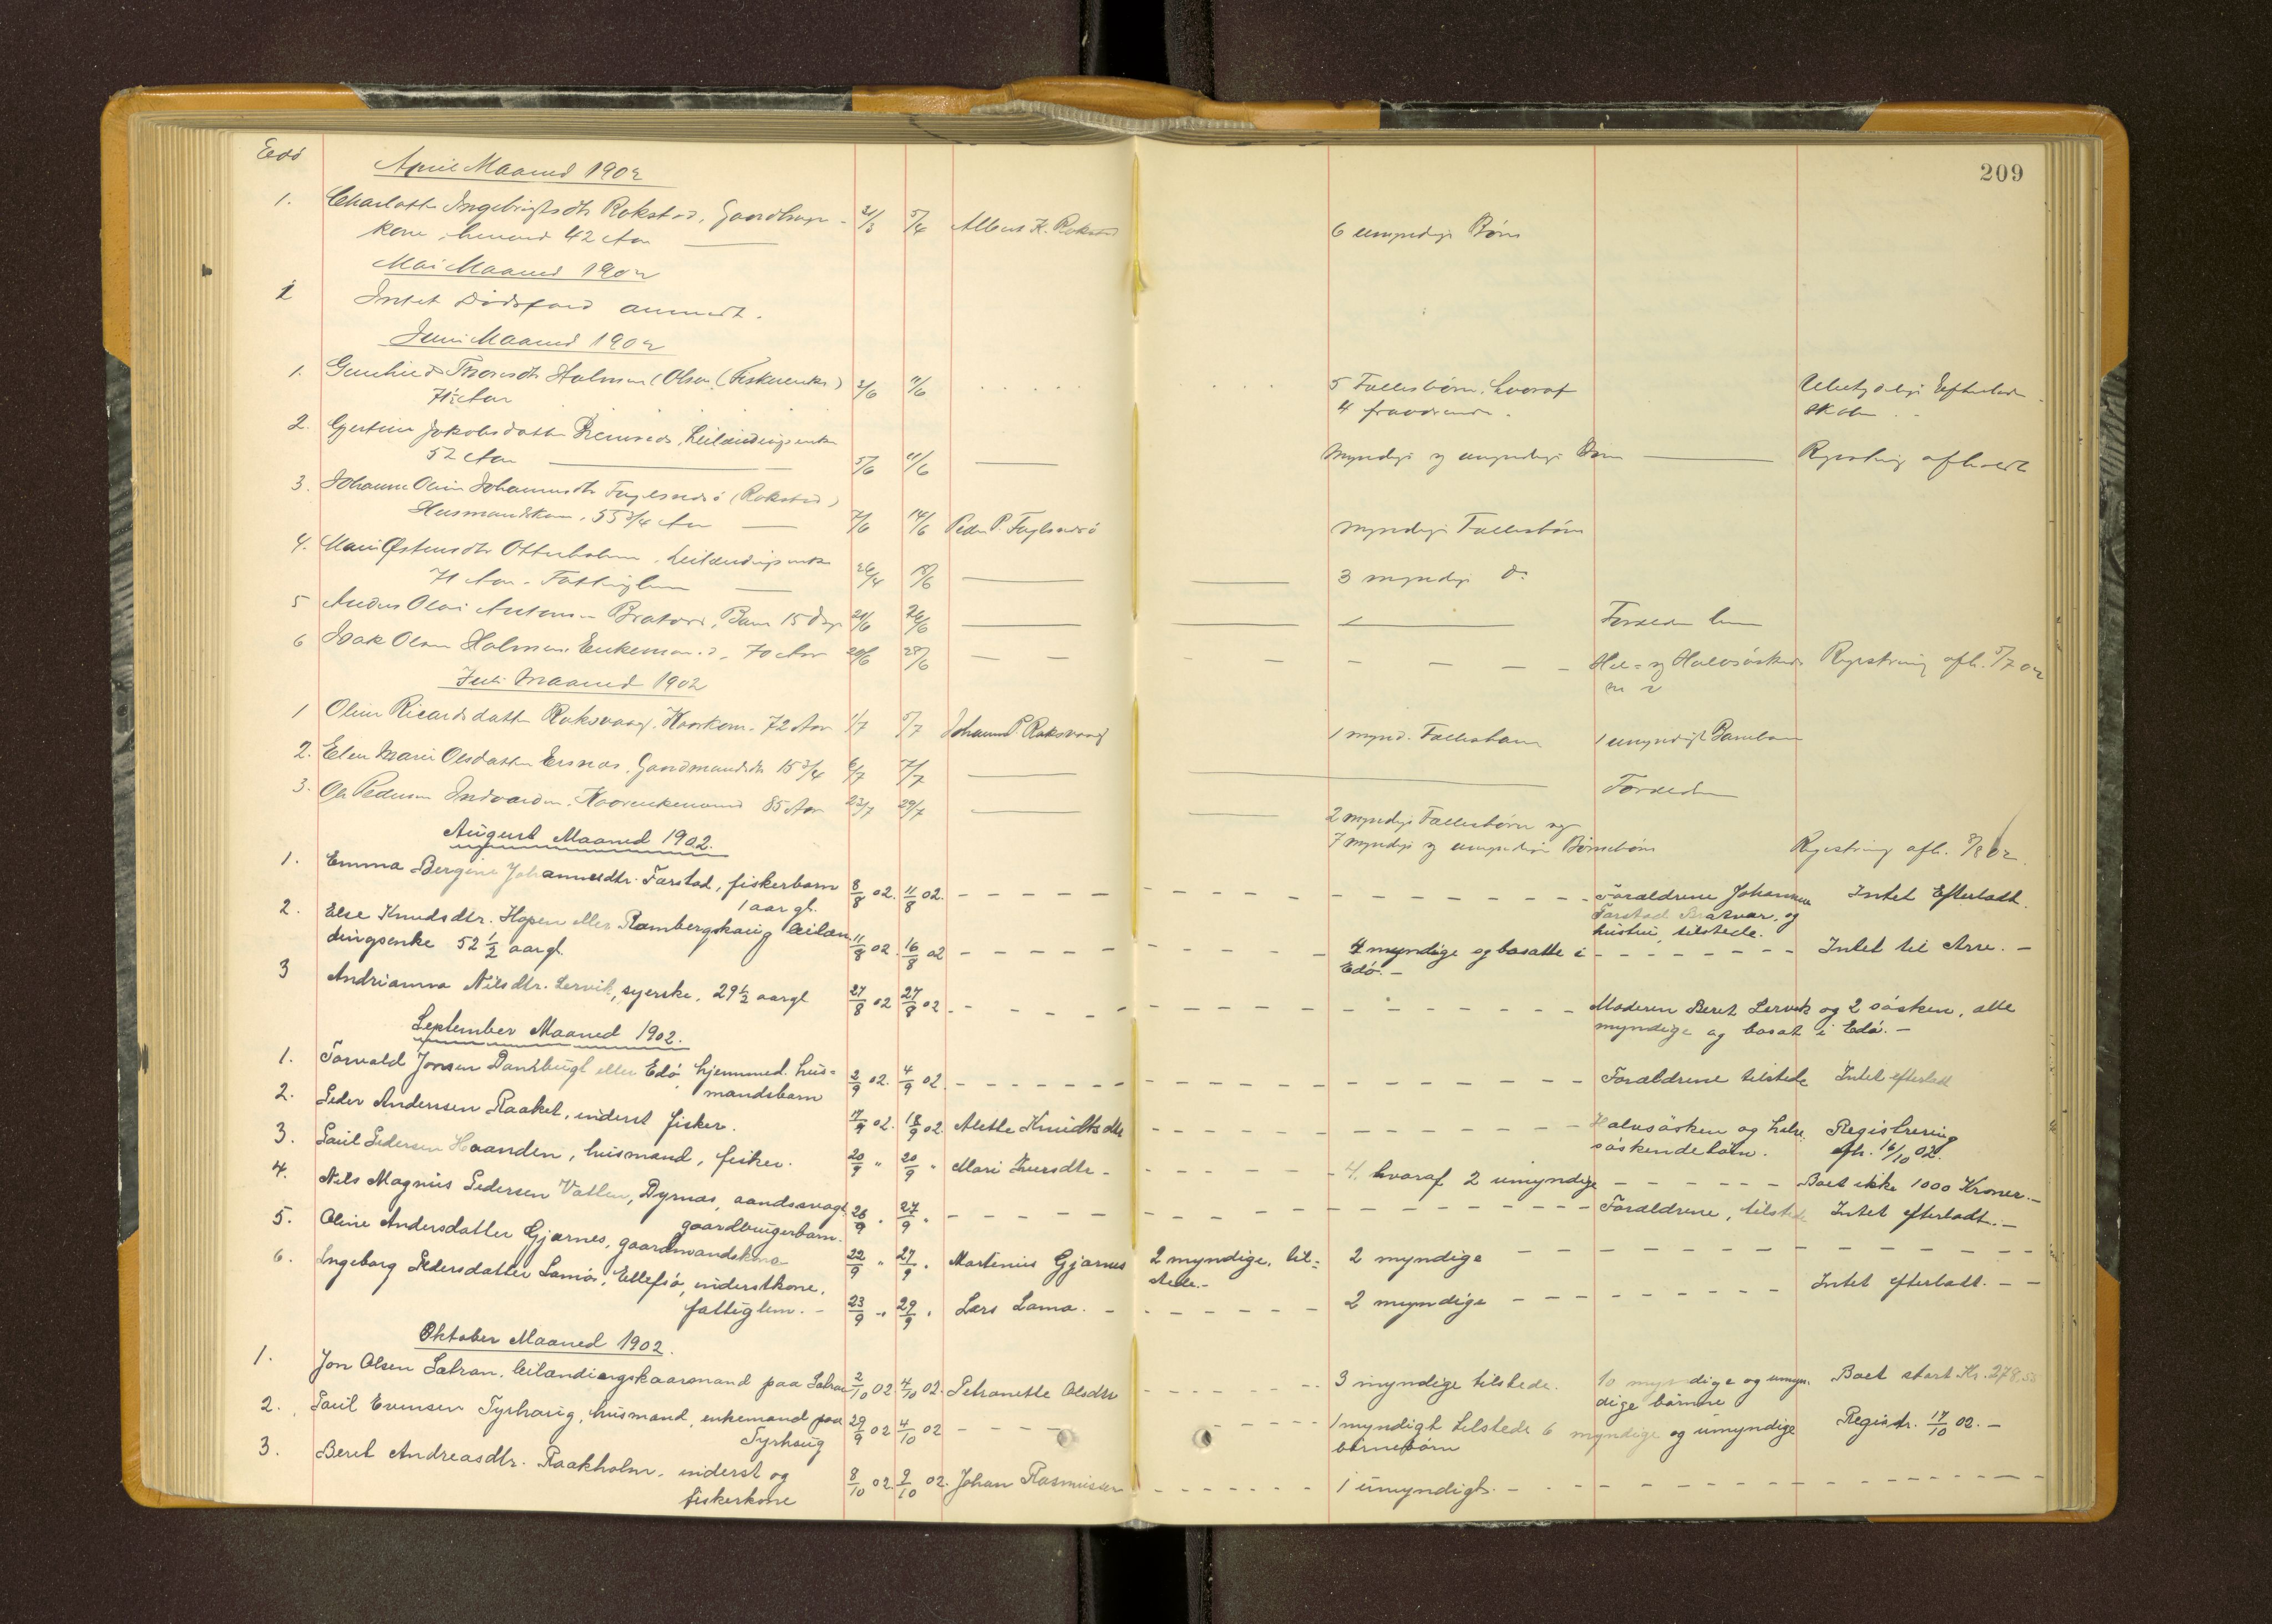 209
Edö
April Maaned 1902
1. Charlotte Ingebrigtsdtr Rokstad, Gaardbruger- 31/3 5/4 Albert K. Rokstad 6 umyndige Børn
kone, henved 42 Aar
Mai Maaned 1902
1 Intet Dødsfald anmeldt.
Juni Maaned 1902
1. Gunhild Thoresdtr Holmen (Olsen) (Fiskerenke) 2/6 11/6 5 Fællesbørn, hvoraf Ubetydelige Efterladen-
71½ Aar 4 fraværende. skab
2. Gjertine Jakobsdatter Leilændingsenke
52 Aar 5/6 11/6 Myndige og umyndige Børn Registring afholdt
3. Johanne Oline Johannesdtr Fuglsnesö (Rokstad)
Husmandskone, 55 3/4 Aar 7/6 14/6 Peder P. Fuglsnesö myndige Fællesbörn
4. Mari Østensdtr Otterholmen, Leilændingsenke
71 Aar. Fattiglem 26/4 18/6 3 myndige do
5 Anders Olai Antonsen Bratvær, Barn 15 Dage 21/6 26/6 Forældrene
6 Isak Olsen Holmen, Enkemand, 70 Aar 20/6 28/6 Hel- og Halvsöskende Registrering afh. 5/7 02
Juli Maaned 1902
1 Oline Ricardsdatter Roksvaag, Kaarkone. 72 Aar 1/7 5/7 Johannes P. Roksvaag 1 mynd. Fællesbarn 1 umyndigt Barnebarn
2. Elen Marie Olsdatter Ersnes, Gaardmandsdtr 15 3/4 6/7 7/7 Forældre
3. Ole Pedersen Indvarden, Kaarenkemand 85 Aar 23/7 29/7 2 myndige Fællesbörn og
7 myndige og umyndige Börnebörn Registring afh. 8/8 02.
August Maaned 1902.
1. Emma Bergine Johannesdtr. Farstad, fiskerbarn 8/8 02. 11/8 02. Forældrene Johannes Intet Efterladt.
1 aar gl. Farstad Bratvær, og
hustru, tilstede.
2. Else Knudsdtr. Hopen eller Rambergskaug leilæn- 11/8 02. 16/8 02 4 myndige og bosatte i Intet til Arv. -
dingsenke 52 ½ aar gl. Edö. -
3 Andrianna Nilsdtr. Lervik, syerske, 29 ½ aar gl 27/8 02 27/8 02 Moderen Beret Lervik og 2 søsken, alle
myndige og bosat i Edö. -
September Maaned 1902.
1. Torvald Jonsen Dansbugt eller Edö, hjemmed. hus- 2/9 02. 4/9 02. Forældrene tilstede Intet efterladt
mandsbarn
2. Peder Andersen Raaket, inderst fisker. 17/9 02. 18/9 02. Alette Knudtsdtr Halvsøsken og hele Registrering
søskendebørn. afh. 16/10 02.
3. Paul Pedersen Haanden, husmand, fisker. 20/9 " 20/9 " Mari Iversdtr - 4, hvoraf 2 umyndige Boet ikke 1000 Kroner. -
4. Nils Magnus Pedersen Vatten, Dyrnæs, aandssvagt 26/9 " 27/9 " Forældrene, tilstede Intet efterladt. -
gaardbrugerbarn.
5. Oline Andersdatter Gjærnes, gaardmandskone 22/9 " 27/9 " Martenius Gjærnes 2 myndige, til- 2 myndige
stede. -
6. Ingeborg Pedersdatter Lamö, Ellefsö, inderstkone, Intet efterladt. - -
fattiglem. - 23/9 " 29/9 " Lars Lamö. - 2 myndige
Oktober Maaned 1902.
1. Jon Olsen Sætran, leilændingskaarmand paa Sætran 2/10 02 4/10 02. Petronette Olsdtr 3 myndige tilstede. 10 myndige og umyn- Boet stort Kr. 278,55
dige børnne
2. Paul Evensen Tyrhaug, husmand, enkemand paa 29/9 02 4/10 02 1 myndigt tilstede 6 myndige og umyndige Registr. 17/10 02. -
Tyrhaug børnebørn
3. Beret Andreasdtr. Raakholm, inderst og 8/10 02. 9/10 02. Johan Rasmussen 1 umyndigt. -
fiskerkone